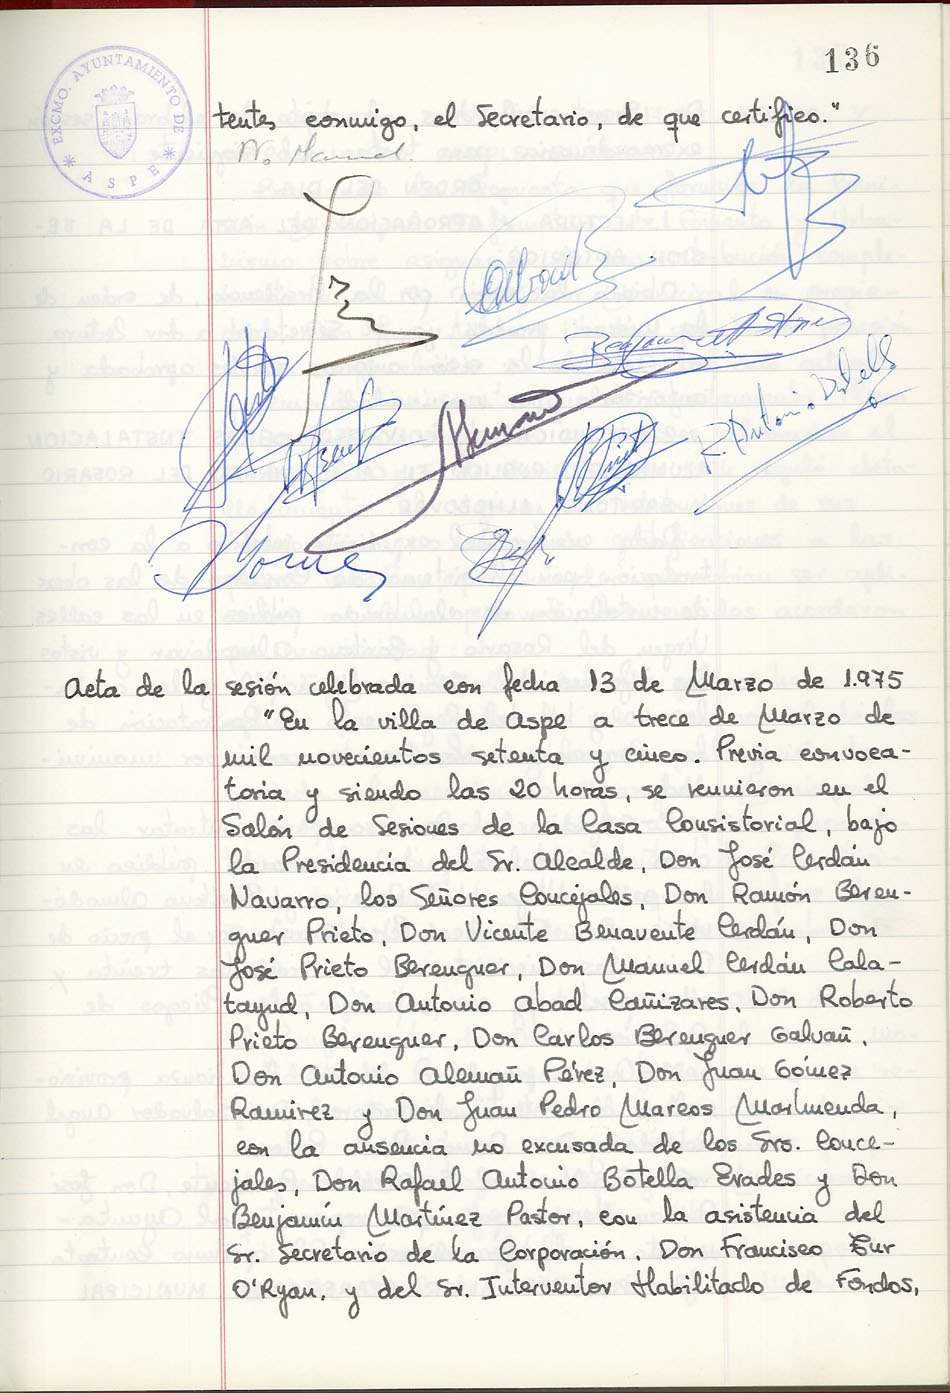 136
EXCMO. AYUNTAMIENTO DE
* ASPE *
tentes conmigo, el Secretario, de que certifico."
R. Antonio Botella
Acta de la sesión celebrada con fecha 13 de Marzo de 1.975
"En la villa de Aspe a trece de Marzo de
mil novecientos setenta y cinco. Previa convoca-
toria y siendo las 20 horas, se reunieron en el
Salón de Sesiones de la Casa Consistorial, bajo
la Presidencia del Sr. Alcalde, Don José Cerdán
Navarro, los Señores Concejales, Don Ramón Beren-
guer Prieto, Don Vicente Benavente Cerdán, Don
José Prieto Berenguer, Don Manuel Cerdán Cala-
tayud, Don Antonio Abad Cañizares, Don Roberto
Prieto Berenguer, Don Carlos Berenguer Galvañ,
Don Antonio Alemañ Pérez, Don Juan Gómez
Ramirez y Don Juan Pedro Marcos Marhuenda,
con la ausencia no excusada de los Srs. Conce-
jales, Don Rafael Antonio Botella Erades y Don
Benjamín Martínez Pastor, con la asistencia del
Sr. Secretario de la Corporación, Don Francisco
O'Ryan, y del Sr. Interventor Habilitado de Fondos,